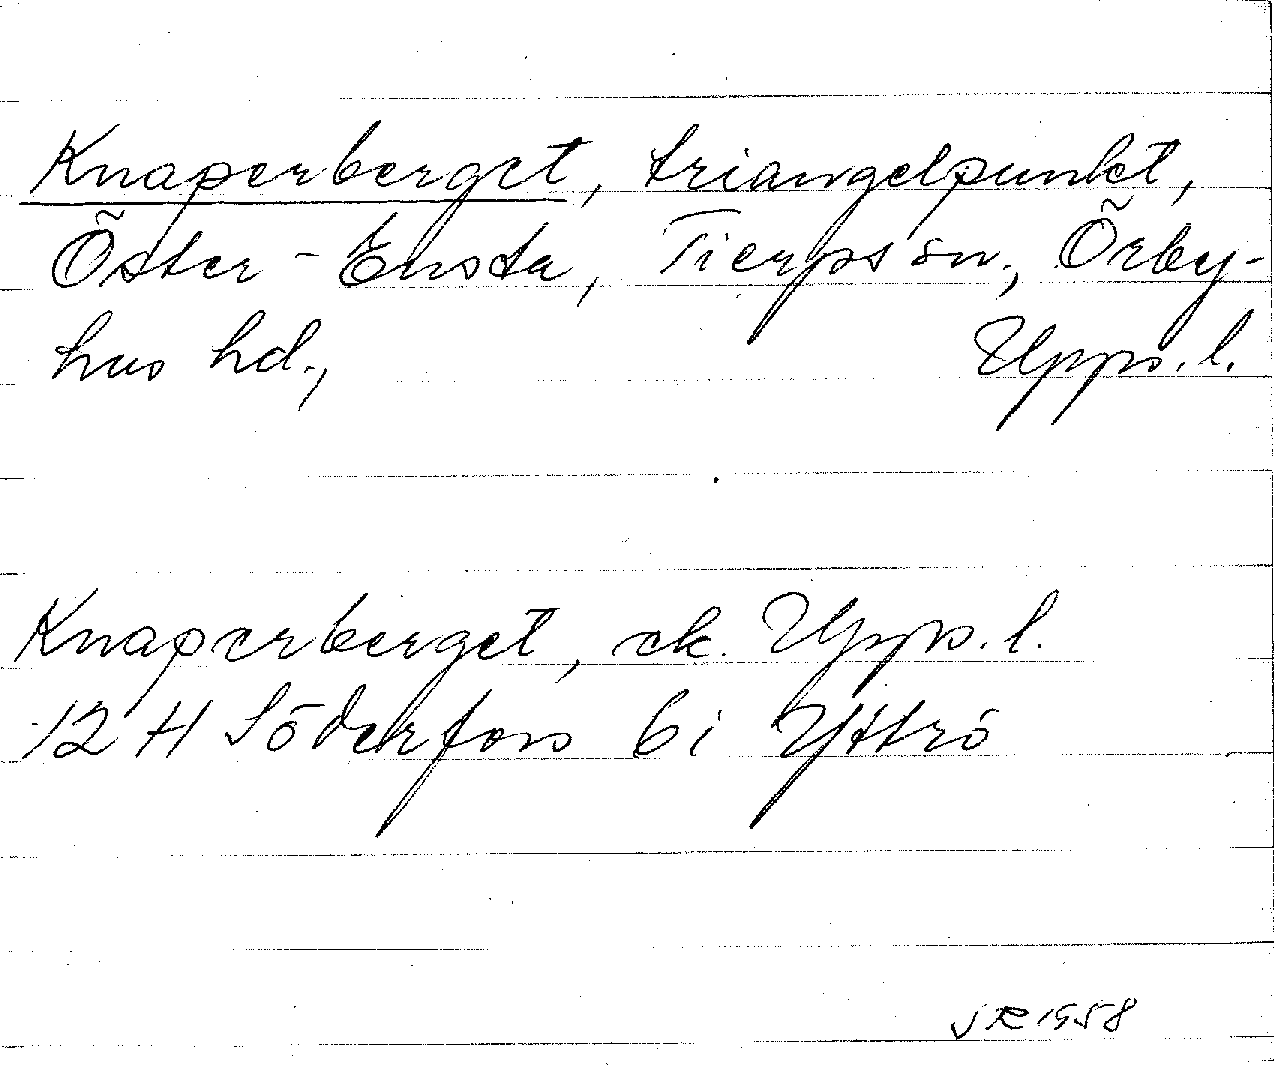 Knaperberget, triangelpunkt,
Öster-Ensta, Tierps sn., Örby-
hus hd., Upps. l.
Knaperberget, ek. Upps. l.
12 H Söderfors 6i Yttrö
JR 1958